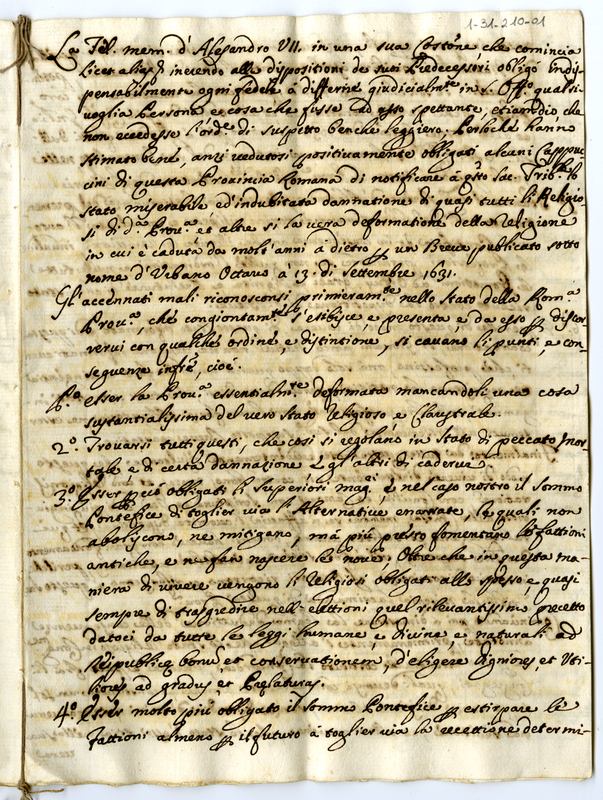 1-31-210-01
La Fel. mem. d'Alesandro VII. in una sua Costõne che comincia
Licet alias inerendo alle dispositioni de suoi Predecessori obligò indis-
pensabilmente ogni fedele à differire giudicialm.te in S. Off.o qualsi-
voglia Persona e cosa che fusse ad esso spettante, etiandio che
non eccedesse l'ord.e di suspetto benche leggiero. Perloche hanno
stimato bene, anzi vedutosi positivamente obligati alcuni Cappuc-
cini di questa Provincia Romana di notificare à q̃sto Sac. Trib.le lo
stato miserabile ed'indubitata dannatione di quasi tutti li Religio-
si di d.a Prov.a et altre si la vera deformatione della Religione
in cui è caduta da molt'anni à dietro p un Breve publicato sotto
nome d'Urbano Octavo à 13. di Settembre 1631.
Gl'accennati mali riconosconsi primieram.te nello stato della Rom.a
Prov.a, che congiontam.te s'esibisce e presenta e da esso p discor-
rervi con qualche ordine e distintione, si cavano li punti, e con-
seguenze infr̃e, cioè.
P.o esser la Prov.a essentialm.te deformata mancandoli una cosa
sustantialissima del vero stato Religioso, e Claustrale.
2.o Trovarsi tutti questi, che così si regolano in stato di peccato mor-
tale, e di certa dannazione e gl'altri di cadervi.
3.o Esser p ciò obligati li Superiori mag.i, e nel caso nostro il sommo
Pontefice di toglier via l'Alternative enarrate, le quali non
aboliscono, ne mitigano, mà più presto fomentano le fattioni
antiche, e ne fan nascere le nove. Oltre che in questa ma-
niera di vivere vengono li Religiosi obligati alle spesso, e quasi
sempre di trasgredire nell'elettioni quel rilevantissimo precetto
datoci da tutte le leggi humane, e Divine, e naturali ad
Reipublicę bonũ, et conservationem, d'eligere digniores, et Uti-
liores ad gradus et Prelaturas.
4.o Esser molto più obligato il sommo Pontefice p estirpare le
fattioni almeno p il futuro à toglier via la recettione determi-